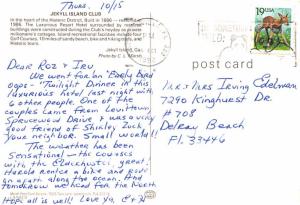 Thurs. 10/15
JEKYLL ISLAND CLUB
In the heart of the Historic District, Built in 1886 — restored
1986. The Luxurious Resort Hotel surrounded by restored
buildings
Golf Courses, 10 miles of sandy beach, bike and hiking trails, and
Historic tours.
Jekyll Island,
Photo by C. J.
DEAR ROZ & IRV
We went for an "Early Bird
oops - Twilight Dinner in this
luxurious hotel last night with
6 other people. One of the
couples came from Levittown,
Sprucewood Drive & was a very
good friend of Shirley
your neighbor. Small world!!
The weather has been
Sensational — the courses
with the great!
Harold rented a bike and rode
on apart along the ocean. And
tomorrow we head for the North
Hope all is well! Love ya,
19 USA
post card
Mr & Mrs Irving Edelman
7290 Kinghurst Dr.
# 708
Delray Beach
FL 33446